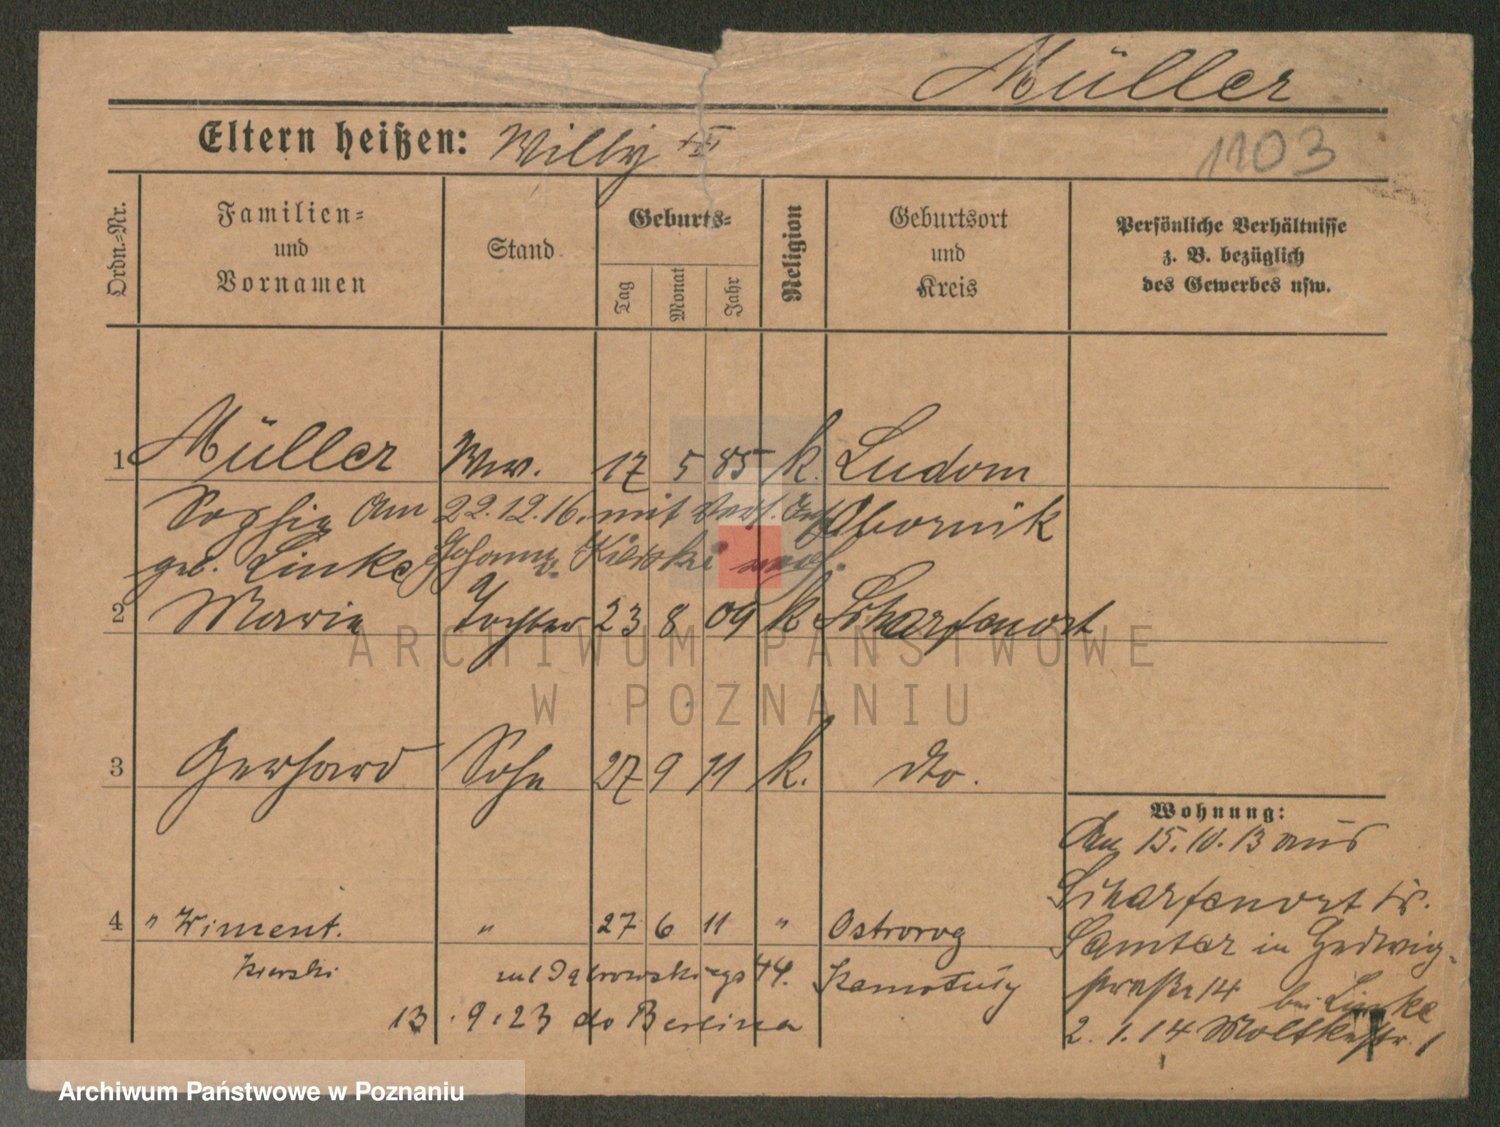 Müller
Eltern heißen: Willy
1103
Ordn.-Nr.
Familien-
und
Vornamen
Stand
Geburts-
Tag
Monat
Jahr
Religion
Geburtsort
und
Kreis
Persönliche Verhältnisse
z. B. bezüglich
des Gewerbes usw.
1 Müller Ww. 17 5 85 k. Ludom
Sophie Am 22.12.16. mit Obornik
geb. Linke Johann Kierski
2 Marie Tochter 23 8 09 k Scharfenort
3 Gerhard Sohn 27 9 11 k. dto.
Wohnung:
Am 15.10.13 aus
Scharfenort Kr.
Samter in Hedwig-
straße 14 bei Linke
2.1.14 Moltkestr. 1
4 " " 27 6 11 " Ostroróg
Kierski ul Dąbrowskiego 44. Szamotuły
13.9.23 do Berlina
ARCHIWUM PAŃSTWOWE
W POZNANIU
Archiwum Państwowe w Poznaniu